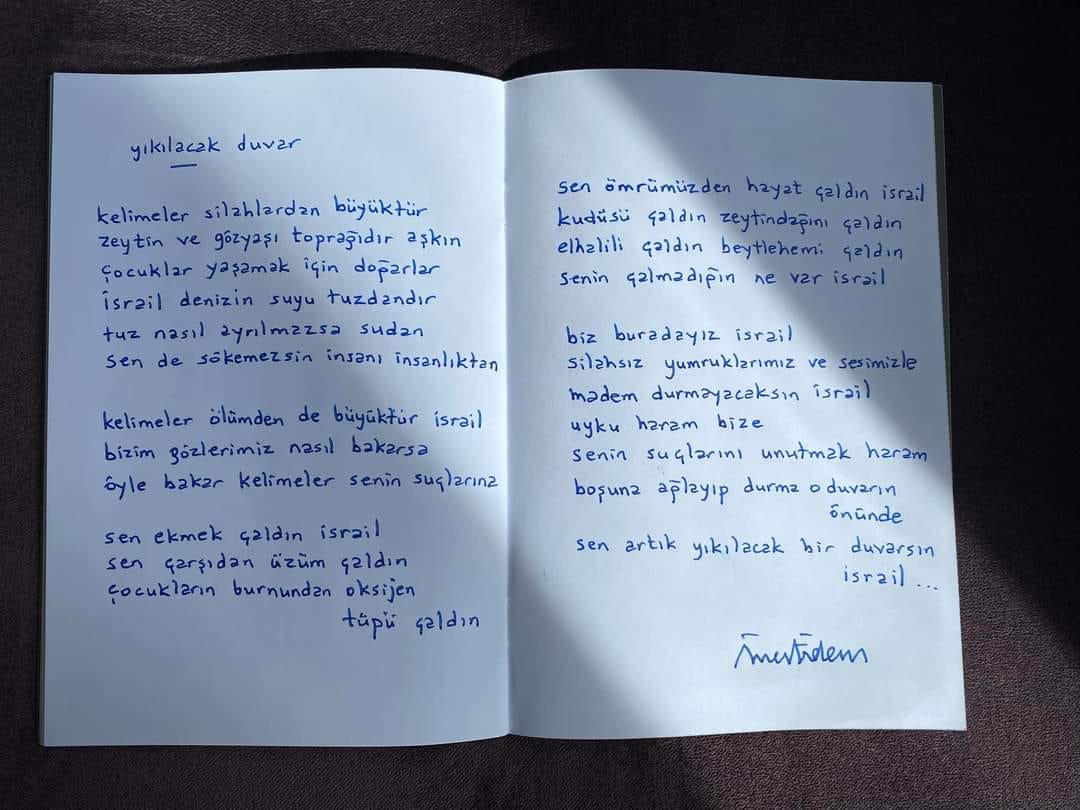 yıkılacak duvar
kelimeler silahlardan büyüktür
zeytin ve gözyaşı toprağıdır aşkın
çocuklar yaşamak için doğarlar
israil denizin suyu tuzdandır
tuz nasıl ayrılmazsa sudan
sen de sökemezsin insanı insanlıktan
kelimeler ölümden de büyüktür israil
bizim gözlerimiz nasıl bakarsa
öyle bakar kelimeler senin suçlarına
sen ekmek çaldın israil
sen çarşıdan üzüm çaldın
çocukların burnundan oksijen
tüpü çaldın
sen ömrümüzden hayat çaldın israil
kudüsü çaldın zeytindağını çaldın
elhalili çaldın beytlehemi çaldın
senin çalmadığın ne var israil
biz buradayız israil
silahsız yumruklarımız ve sesimizle
madem durmayacaksın israil
uyku haram bize
senin suçlarını unutmak haram
boşuna ağlayıp durma o duvarın
önünde
sen artık yıkılacak bir duvarsın
israil...